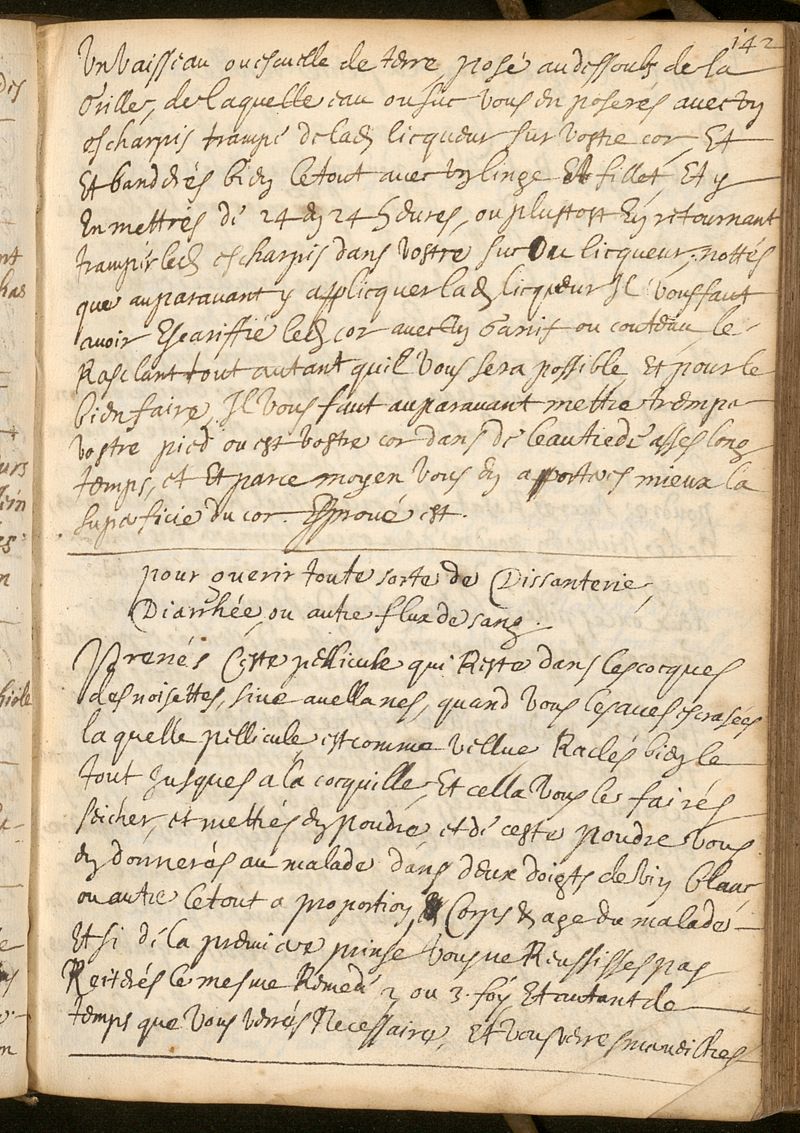 142
Un Vaisseau ou escuelle de terre posé au dessoubs de la
Grille, de laquelle eau ou suc vous en poserés avec un
escharpis trampé de lad licqueur sur vostre cor, Et
Et bandérés bien le tout avec un linge Et fillet, Et y
En mettrés de 24 en 24 heures, ou plustost En retournant
tramper led escharpis dans vostre suc Ou licqueur, nottés
que auparavant y applicquer lad licqueur Il vous faut
avoir Escariffié led cor avec un Ganif ou couteau le
Rasclant tout autant quil vous sera possible, Et pour le
bien faire, Il vous faut auparavant mettre trempe
vostre pied ou est vostre cor dans de leau tiede asses long
temps, et Et par ce moyen vous en apporterés mieux la
superficie du cor. Esprouvé est.
pour guerir toute sorte de Dissanterie,
Diarrhée, ou autre flux de sang.
Prenés Ceste pellicule qui Reste dans les cocques
des noisettes, sive avellanes, quand vous les aves escrasées
laquelle pellicule est comme vellue Raclés bien le
tout Jusques a la cocquille, Et cella vous le fairés
seicher, et mettrés en poudre et de ceste poudre vous
en donnerés au malade dans deux doigts de vin blanc
ou autre le tout a proportion Corps & age du malade
Et si de la premiere prinse vous ne Reussisses pas
Reiterés le mesme Remede 2 ou 3. fois Et autant de
temps que vous verrés Necessaire, Et vous verres